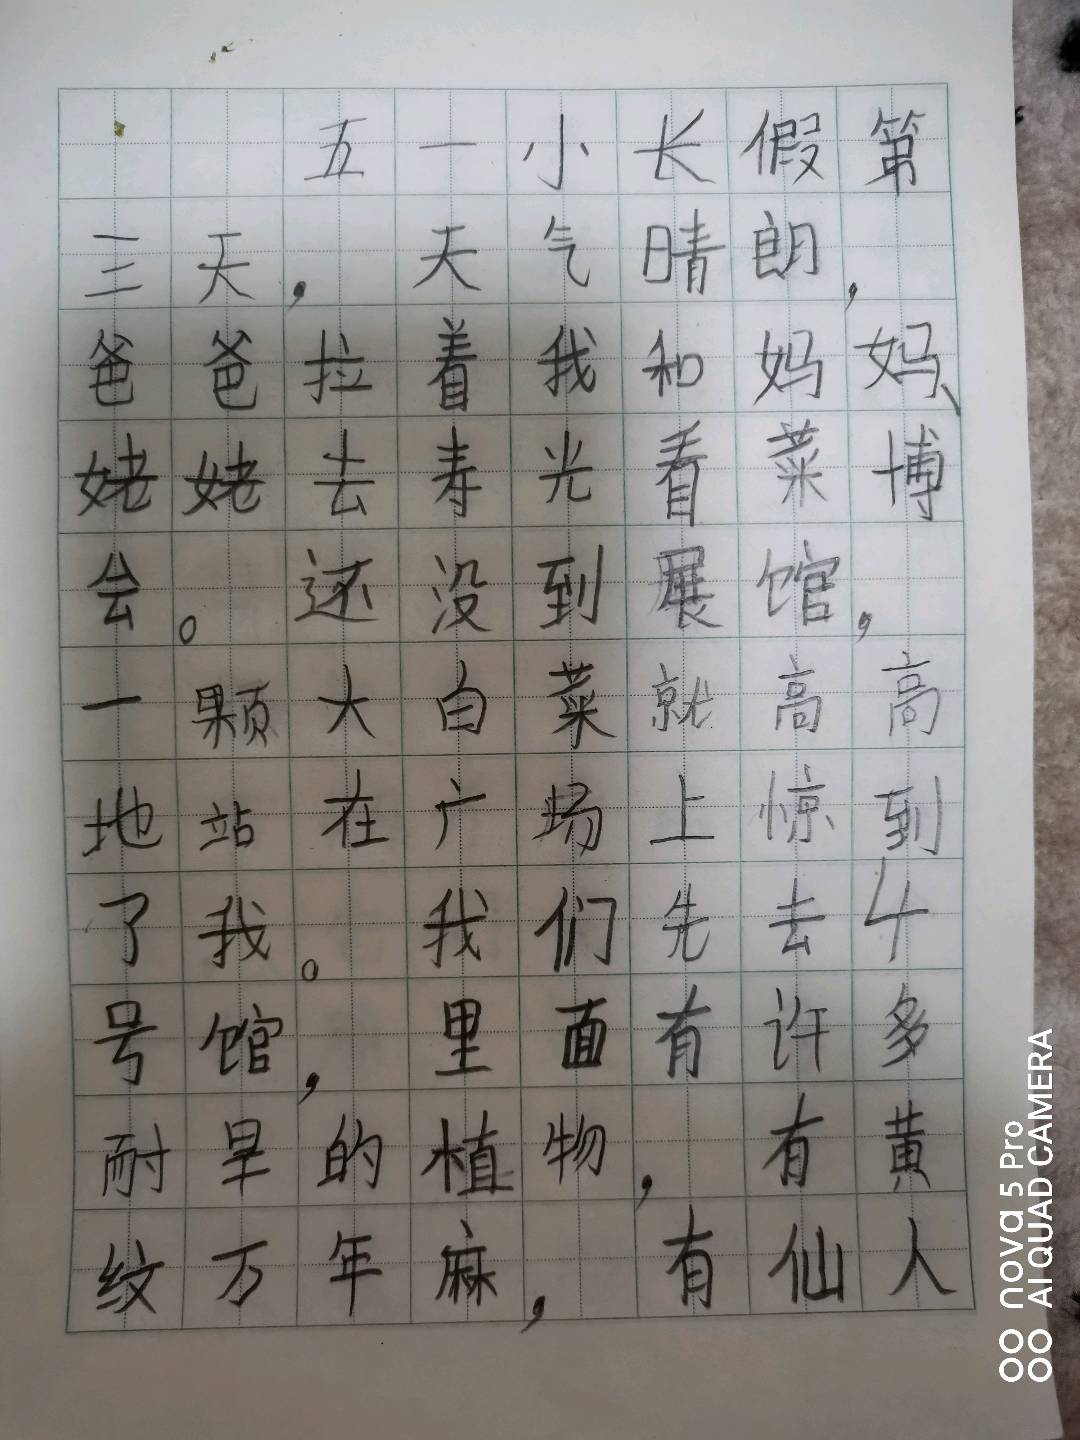 五一小长假第
三天，天气晴朗，
爸爸拉着我和妈妈、
姥姥去寿光看菜博
会。还没到展馆，
一颗大白菜就高高
地站在广场上惊到
了我。我们先去4
号馆，里面有许多
耐旱的植物，有黄
纹万年麻，有仙人
nova 5 Pro
AI QUAD CAMERA